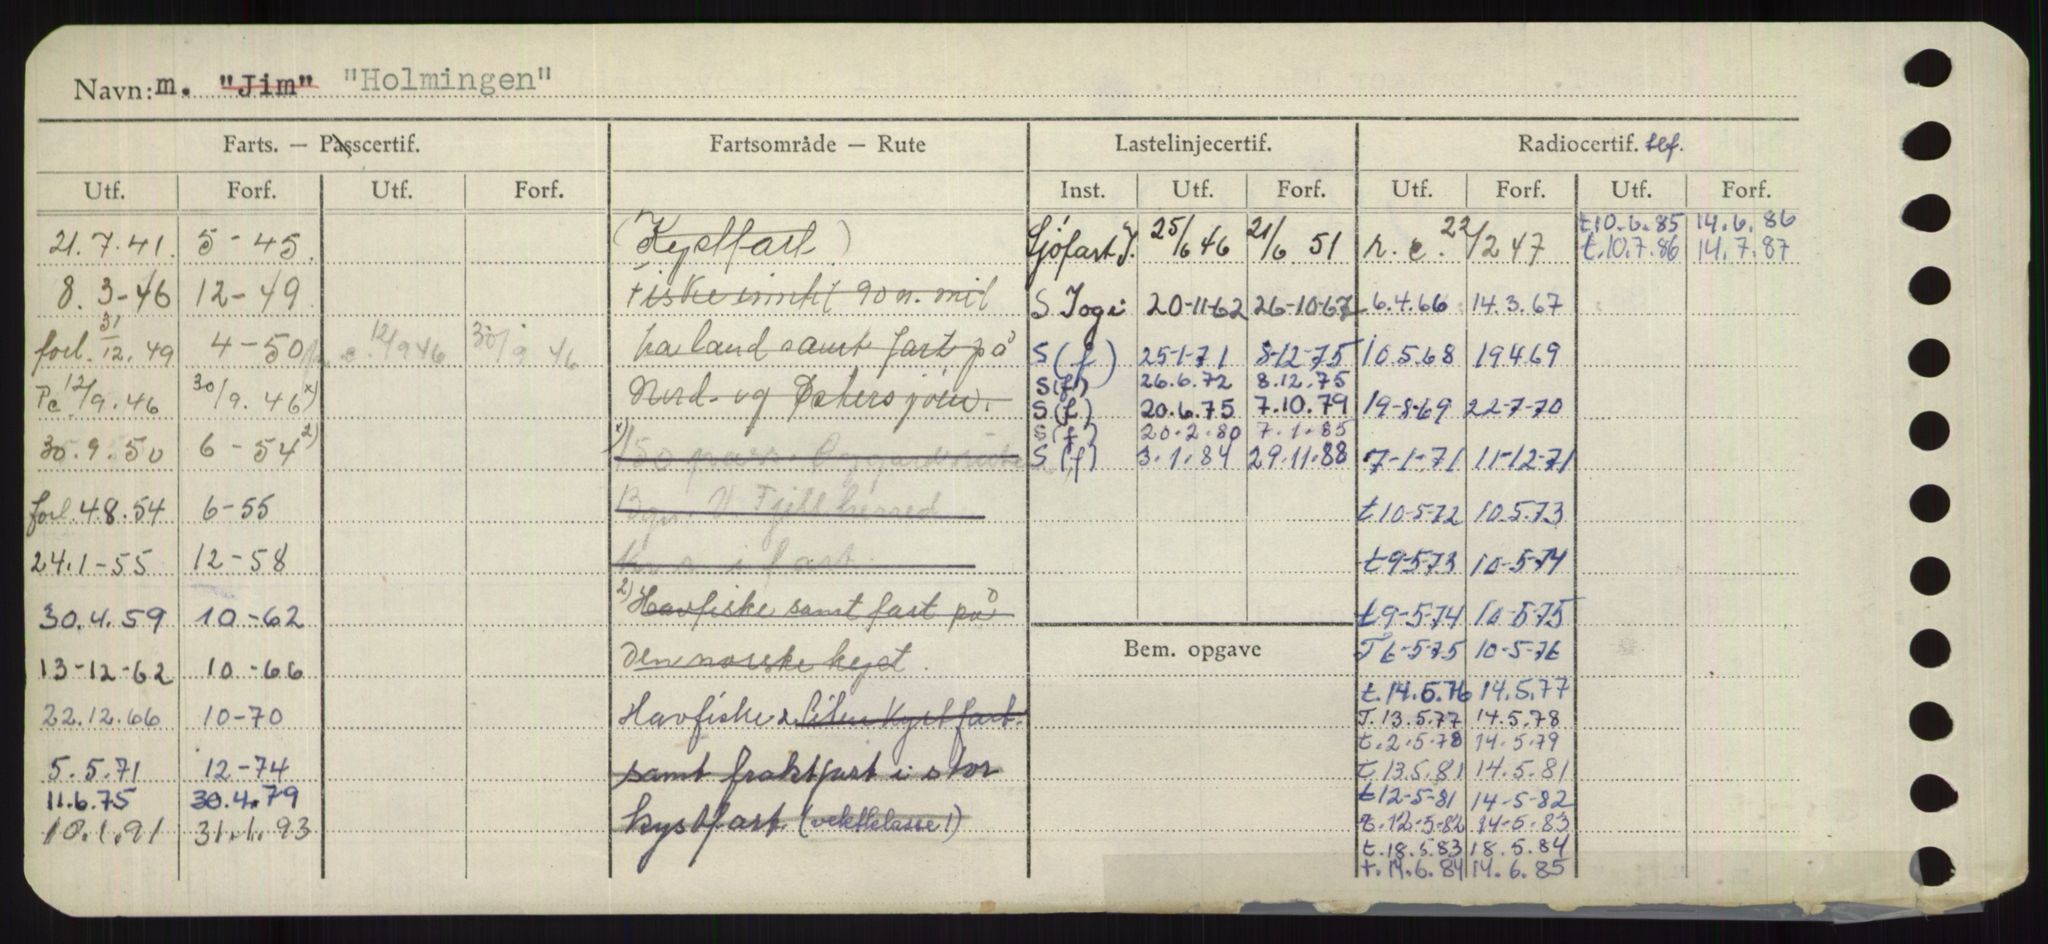 Navn: m. "Jim" "Holmingen"
Farts. — Passcertif. Fartsområde — Rute Lastelinjecertif. Radiocertif. tlf.
Utf. Forf. Utf. Forf. Inst. Utf. Forf. Utf. Forf. Utf. Forf.
t.10.6.85 14.6.86
21.7.41. 5-45. (Kystfart) Sjøfart 25/6 46 21/6 51 r. c. 22/2 47 t.10.7.86 14.7.87
8. 3-46 12-49. Fiske inntil 90 n. mil S Togi 20-11-62 26-10-67 6.4.66 14.3.67
forl. 31/12.49 4-50 12/9 46 30/9.46 fra land samt fart på S(f) 25-1-71 8-12-75 10.5.68 19.4.69
S(f) 26.6.72 8.12.75
Pc 12/9.46 30/9.46 x) Nord- og Østersjøen. S(f) 20.6.75 7.10.79 19-8-69 22-7-70
S(f) 20.2.80 7.1.85
30.9.50 6-54 2) x) 150 pass. S(f) 3.1.84 29.11.88 7-1-71 11-12-71
forl. 4.8.54 6-55 Fjell herred t10-5-72 10.5.73
24.1-55 12-58 t9-5-73 10-5-74
30.4.59 10-62 2) Havfiske samt fart på t9-5-74 10-5-75
13-12-62 10-66 den norske kyst. Bem. opgave T6-5-75 10-5-76
t.14.5.76 14.5.77
22.12.66 10-70 Havfiske & liten kystfart. T.13.5.77 14.5.78
t.2.5.78 14.5.79
5.5.71 12-74 samt fraktfart i stor t.13.5.81 14.5.81
11.6.75 30.4.79 t12-5-81 14-5-82
10.1.91 31.1.93 kystfart. (vektklasse 1) t.12-5-82 14-5.83
t.18.5.83 18.5.84
t.14.6.84 14.6.85